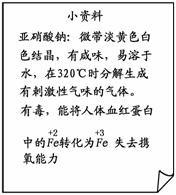 小资料
亚硝酸钠：微带淡黄色白
色结晶，有咸味，易溶于
水，在320℃时分解生成
有刺激性气味的气体。
有毒，能将人体血红蛋白
中的+2Fe转化为+3Fe 失去携
氧能力